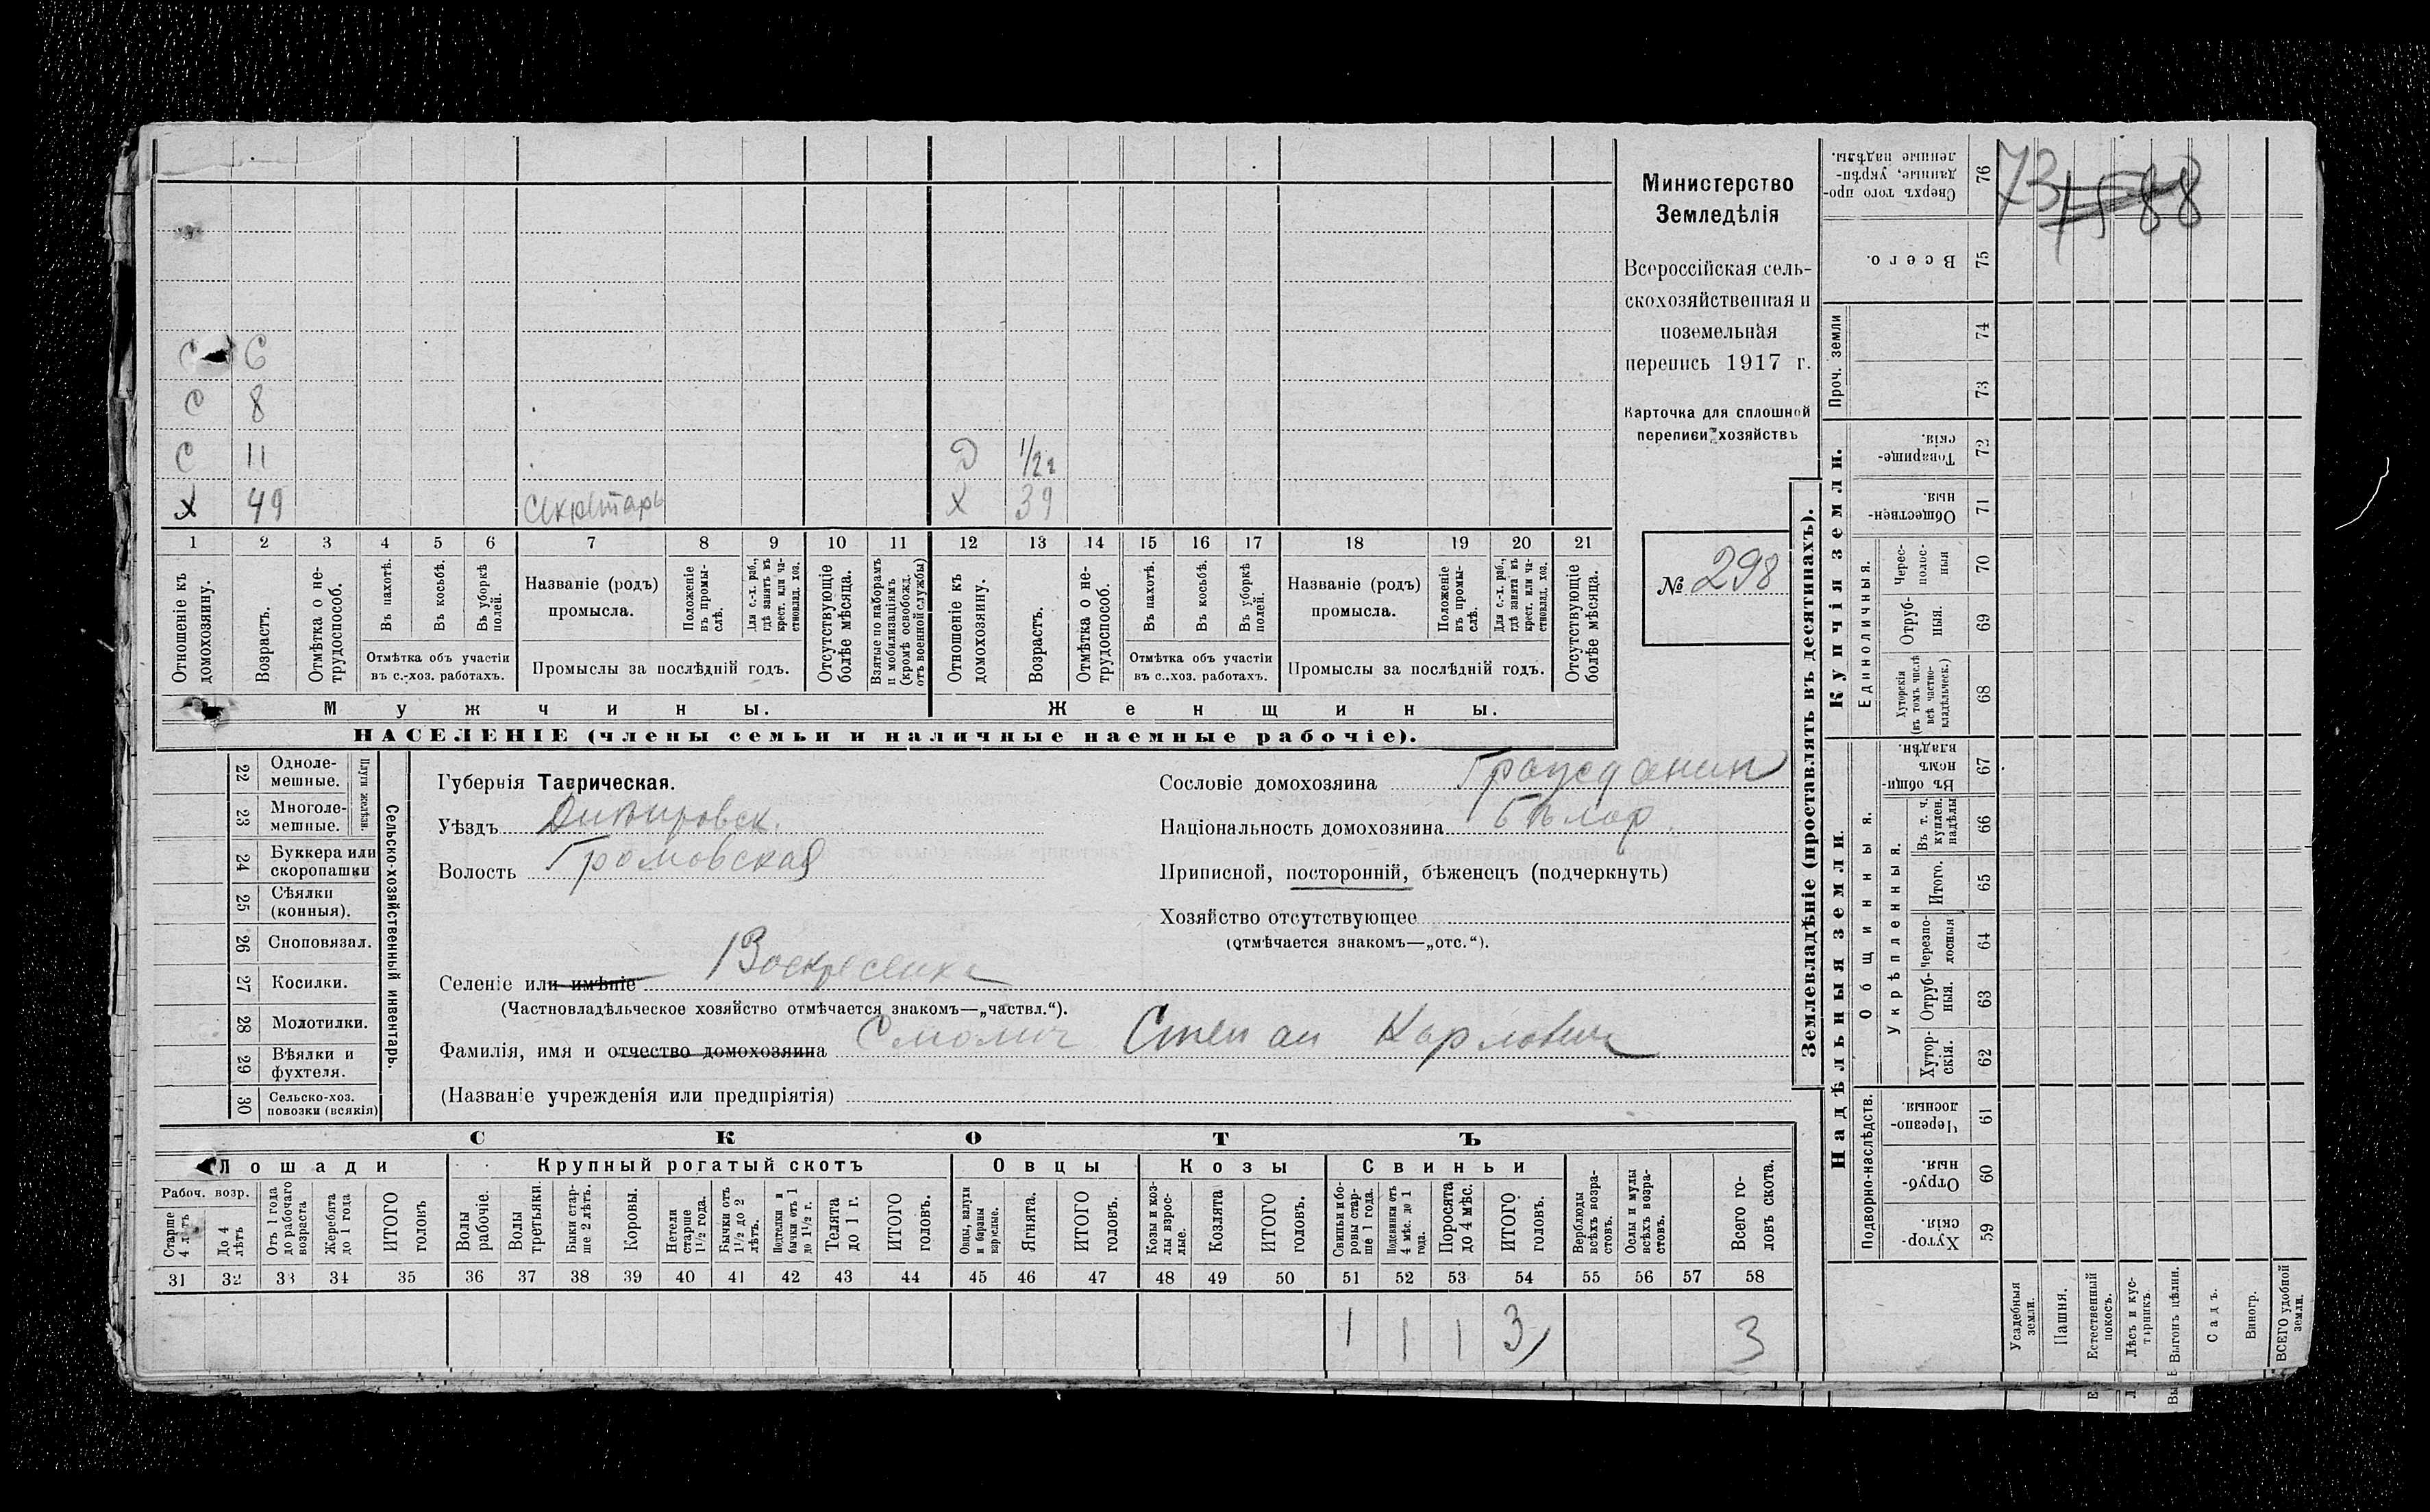 73 1588
Министерство
Земледѣлія
Всероссійская сель-
скохозяйственная и
поземельная
перепись 1917 г.
Карточка для сплошной
переписи хозяйствъ
№ 298
С 6
С 8
С 11 Д 1/2 г
Х 49 секретарь Х 39
1 2 3 4 5 6 7 8 9 10 11 12 13 14 15 16 17 18 19 20 21
Отношеніе къ домохозяину.
Возрастъ.
Отмѣтка о не-трудоспособ.
Въ пахотѣ.
Въ косьбѣ.
Въ уборкѣ полей.
Отмѣтка объ участіи
въ с.-хоз. работахъ.
Названіе (родъ)
промысла.
Положеніе въ промы-слѣ.
Для с.-х. раб., гдѣ занятъ въ крест. или ча-стновлад. хоз.
Промыслы за послѣдній годъ.
Отсутствующіе болѣе мѣсяца.
Взятые по наборамъ и мобилизаціямъ (кромѣ освобожд. отъ военной службы)
Отношеніе къ домохозяину.
Возрастъ.
Отмѣтка о не-трудоспособ.
Въ пахотѣ.
Въ косьбѣ.
Въ уборкѣ полей.
Отмѣтка объ участіи
въ с.-хоз. работахъ.
Названіе (родъ)
промысла.
Положеніе въ промы-слѣ.
Для с.-х. раб., гдѣ занята въ крест. или ча-стновлад. хоз.
Промыслы за послѣдній годъ.
Отсутствующіе болѣе мѣсяца.
Мужчины.
Женщины.
НАСЕЛЕНІЕ (члены семьи и наличные наемные рабочіе).
Сельско-хозяйственный инвентарь.
Плуги желѣзн.
22 Одноле-мешные.
23 Многоле-мешные.
24 Буккера или скоропашки
25 Сѣялки (конныя).
26 Сноповязал.
27 Косилки.
28 Молотилки.
29 Вѣялки и фухтеля.
30 Сельско-хоз. повозки (всякія)
Губернія Таврическая.
Уѣздъ Днѣпровск.
Волость Громовская
Сословіе домохозяина Гражданин
Національность домохозяина Бѣлор.
Приписной, посторонній, бѣженецъ (подчеркнуть)
Хозяйство отсутствующее
(отмѣчается знакомъ—„отс.“).
Селеніе или имѣніе Воскресенка
(Частновладѣльческое хозяйство отмѣчается знакомъ—„частвл.“).
Фамилія, имя и отчество домохозяина Смолич Степан Карлович
(Названіе учрежденія или предпріятія)
СКОТЪ
Лошади
Крупный рогатый скотъ
Овцы
Козы
Свиньи
Рабоч. возр.
Старше 4 лѣтъ
До 4 лѣтъ
Отъ 1 года до рабочаго возраста
Жеребята до 1 года
ИТОГО головъ
Волы рабочіе.
Волы третьяки.
Быки стар-ше 2 лѣтъ.
Коровы.
Нетели старше 1 1/2 года.
Бычки отъ 1 1/2 до 2 лѣтъ.
Подтелки и бычки отъ 1 до 1 1/2 г.
Телята до 1 г.
ИТОГО головъ.
Овцы, валухи и бараны взрослые.
Ягнята.
ИТОГО головъ.
Козы и коз-лы взрос-лые.
Козлята
ИТОГО головъ.
Свиньи и бо-ровы стар-ше 1 года.
Подсвинки отъ 4 мѣс. до 1 года.
Поросята до 4 мѣс.
ИТОГО головъ.
Верблюды всѣхъ возра-стовъ.
Ослы и мулы всѣхъ возра-стовъ.
Всего го-ловъ скота.
31 32 33 34 35 36 37 38 39 40 41 42 43 44 45 46 47 48 49 50 51 52 53 54 55 56 57 58
1 1 1 3 3
Землевладѣніе (проставлять въ десятинахъ).
Надѣльныя земли
Купчія земли.
Проч. земли
Подворно-наслѣдств.
Общинныя.
Укрѣпленныя.
Единоличныя.
Сверхъ того про-данные, укрѣп-ленные надѣлы. 76
Всего. 75
74
73
Товарище-скія. 72
Обществен-ныя. 71
Черес-полос-ныя 70
Отруб-ныя. 69
Хуторскія (въ томъ числѣ всѣ частно-владѣльческ.) 68
Въ общи-номъ владѣн. 67
Въ т. ч. куплен. надѣлы 66
Итого. 65
Черезпо-лосныя 64
Отруб-ныя. 63
Хутор-скія. 62
Черезпо-лосныя. 61
Отруб-ныя. 60
Хутор-скія. 59
Усадебныя земли.
Пашня.
Естественный покосъ.
Лѣсъ и кус-тарникъ.
Выгонъ цѣлин.
Садъ.
Виногр.
ВСЕГО удобной земли.